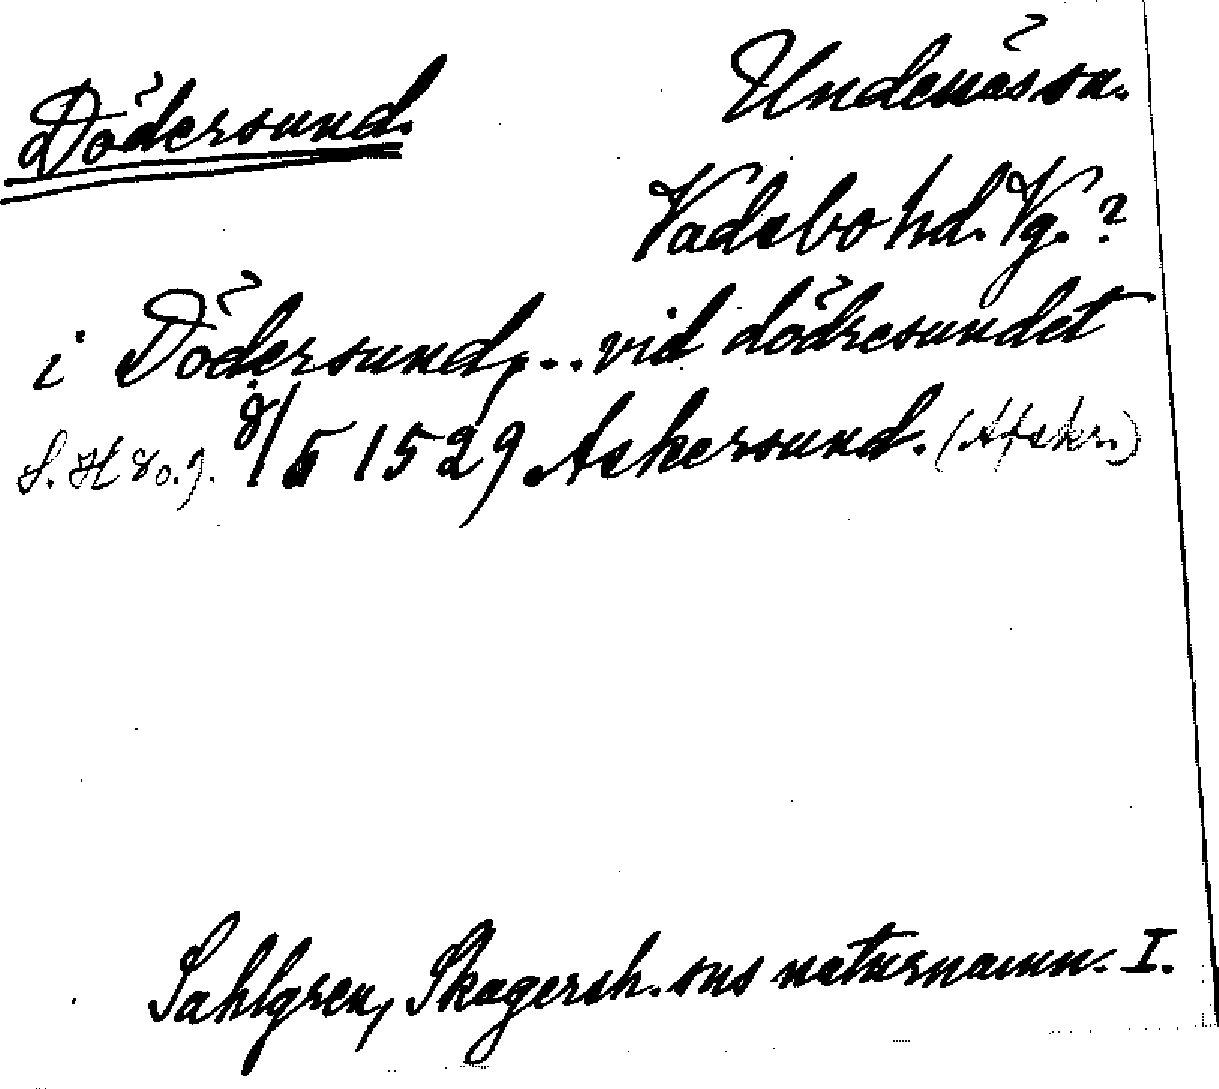 Dödersund.
Undenäs sn.
Vadsbo hd. Vg.?
i Dödersund, .. vid dödresundet
S. H 80.9. 8/5 1529 Askersund. (Afskr.)
Sahlgren, Skagersh. sns naturnamn. I.